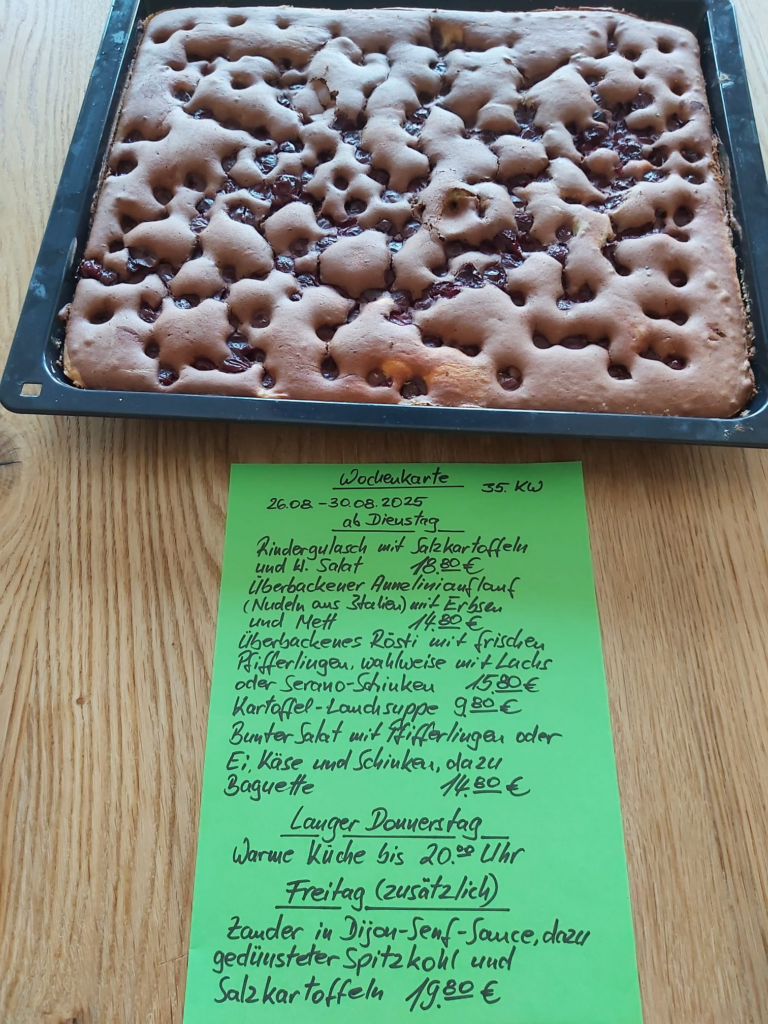 Wochenkarte 35. KW
26.08. - 30.08.2025
ab Dienstag
Rindergulasch mit Salzkartoffeln
und kl. Salat 18.80 €
Überbackener Anneliniauflauf
(Nudeln aus Italien) mit Erbsen
und Mett 14.80 €
Überbackenes Rösti mit frischen
Pfifferlingen, wahlweise mit Lachs
oder Serano-Schinken 15.80 €
Kartoffel-Lauchsuppe 9.80 €
Bunter Salat mit Pfifferlingen oder
Ei, Käse und Schinken, dazu
Baguette 14.80 €
Langer Donnerstag
Warme Küche bis 20.00 Uhr
Freitag (zusätzlich)
Zander in Dijon-Senf-Sauce, dazu
gedünsteter Spitzkohl und
Salzkartoffeln 19.80 €